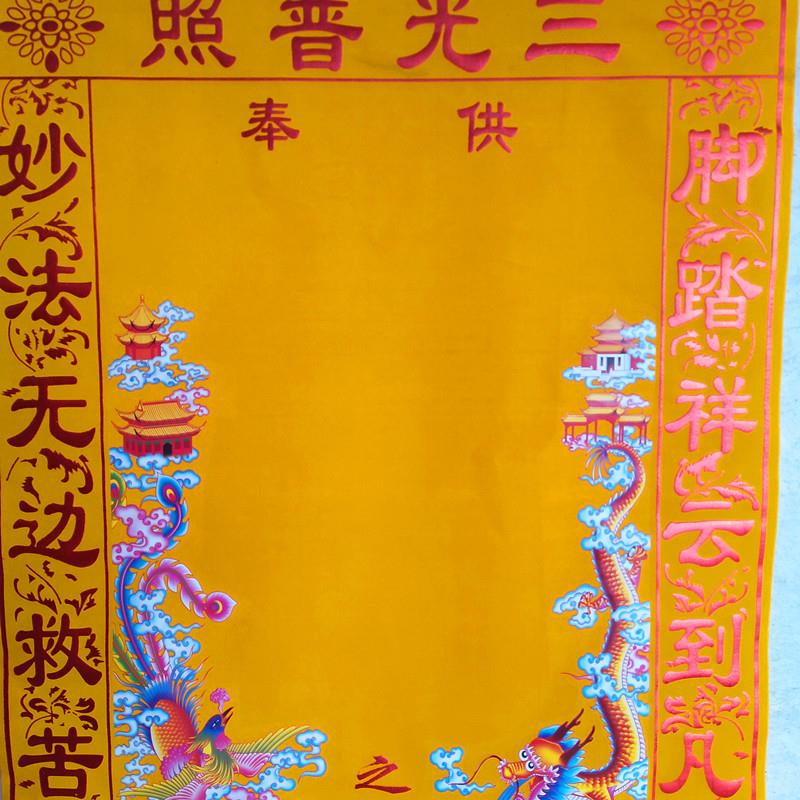 三光普照
供奉
脚踏祥云到凡
妙法无边救苦
之